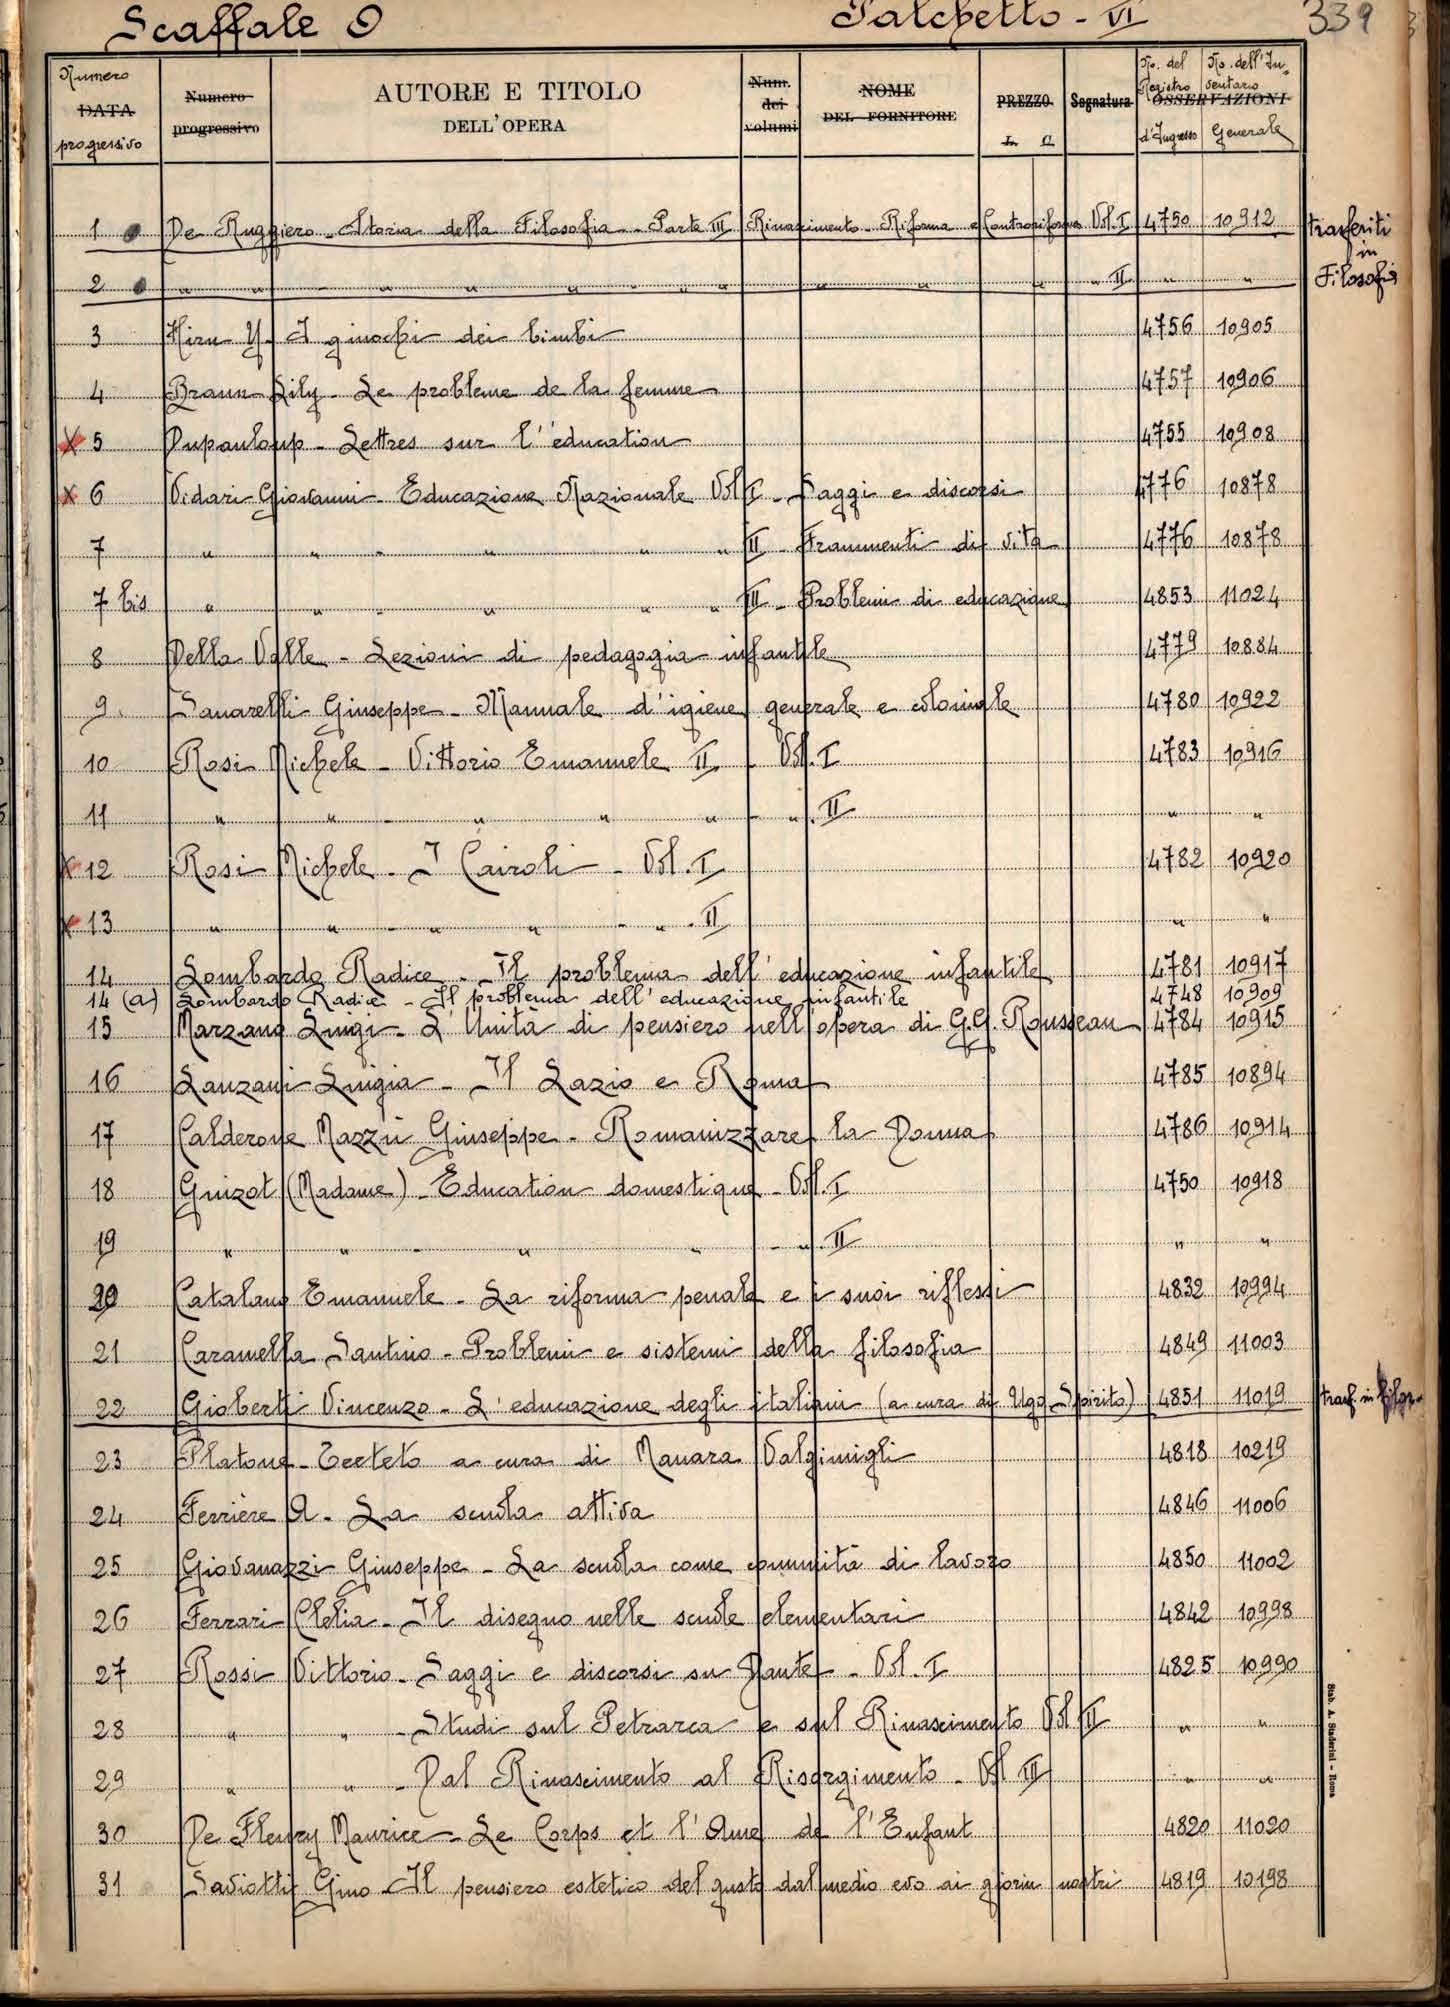 Scaffale O Palchetto - VI 339
Numero DATA progressivo | Numero progressivo | AUTORE E TITOLO DELL'OPERA | Num. dei volumi | NOME DEL FORNITORE | PREZZO L. C. | Segnatura | OSSERVAZIONI No. del Registro d'Ingresso | No. dell'Inventario Generale
1 De Ruggiero - Storia della Filosofia - Parte III Rinascimento - Riforma e Controriforma Vol. I 4750 10912 trasferiti in Filosofia
2 " " - " " " " " " " " " II " "
3 Hirn Y. I giuochi dei bimbi 4756 10905
4 Braun Lily - Le probleme de la femme 4757 10906
X 5 Dupanloup - Lettres sur l'éducation 4755 10908
X 6 Vidari Giovanni - Educazione Nazionale Vol I - Saggi e discorsi 4776 10878
7 " " - " " " II - Frammenti di vita 4776 10878
7 bis " " - " " " III - Problemi di educazione 4853 11024
8 Della Valle - Lezioni di pedagogia infantile 4779 10884
9 Sanarelli Giuseppe - Manuale d'igiene generale e coloniale 4780 10922
10 Rosi Michele - Vittorio Emanuele II - Vol. I 4783 10916
11 " " - " " " - ". II " "
X 12 Rosi Michele - I Cairoli - Vol. I 4782 10920
X 13 " " - " " - ". II " "
14 Lombardo Radice - Il problema dell'educazione infantile 4781 10917
14 (a) Lombardo Radice - Il problema dell'educazione infantile 4748 10909
15 Marzano Luigi - L'Unità di pensiero nell'opera di G.G. Rousseau 4784 10915
16 Lanzani Luigia - Il Lazio e Roma 4785 10894
17 Calderone Mazzù Giuseppe - Romanizzare la Donna 4786 10914
18 Guizot (Madame) - Education domestique - Vol. I 4750 10918
19 " " - " " - ". II " "
20 Catalano Emanuele - La riforma penale e i suoi riflessi 4832 10994
21 Caramella Santino - Problemi e sistemi della filosofia 4849 11003
22 Gioberti Vincenzo - L'educazione degli italiani (a cura di Ugo Spirito) 4851 11019 trasf. in
23 Platone - Teeteto a cura di Manara Valgimigli 4818 10219
24 Ferrière A. - La scuola attiva 4846 11006
25 Giovanazzi Giuseppe - La scuola come comunità di lavoro 4850 11002
26 Ferrari Clelia - Il disegno nelle scuole elementari 4842 10998
27 Rossi Vittorio - Saggi e discorsi su Dante - Vol. I 4825 10990
28 " " - Studi sul Petrarca e sul Rinascimento Vol II " "
29 " " - Dal Rinascimento al Risorgimento - Vol III " "
30 De Fleury Maurice - Le Corps et l'Ame de l'Enfant 4820 11020
31 Saviotti Gino - Il pensiero estetico del gusto dal medio evo ai giorni nostri 4819 10198
Stab. A. Staderini - Roma